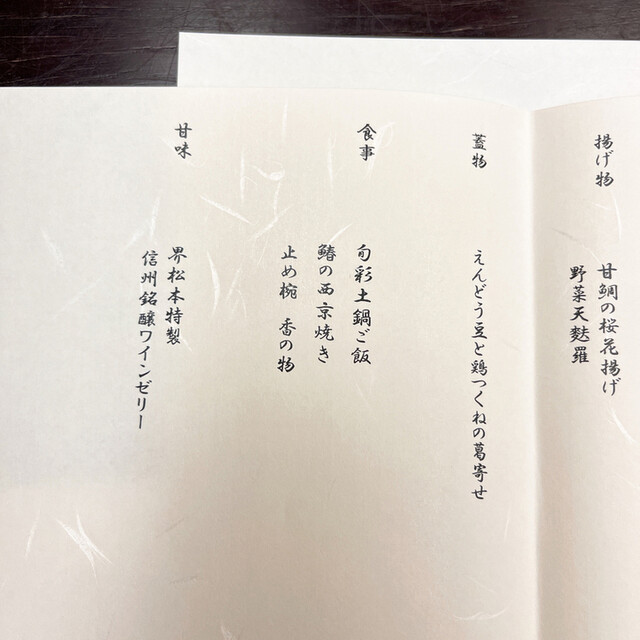 揚げ物
甘鯛の桜花揚げ
野菜天麩羅
蓋物
えんどう豆と鶏つくねの葛寄せ
食事
旬彩土鍋ご飯
鰆の西京焼き
止め椀 香の物
甘味
界松本特製
信州銘醸ワインゼリー